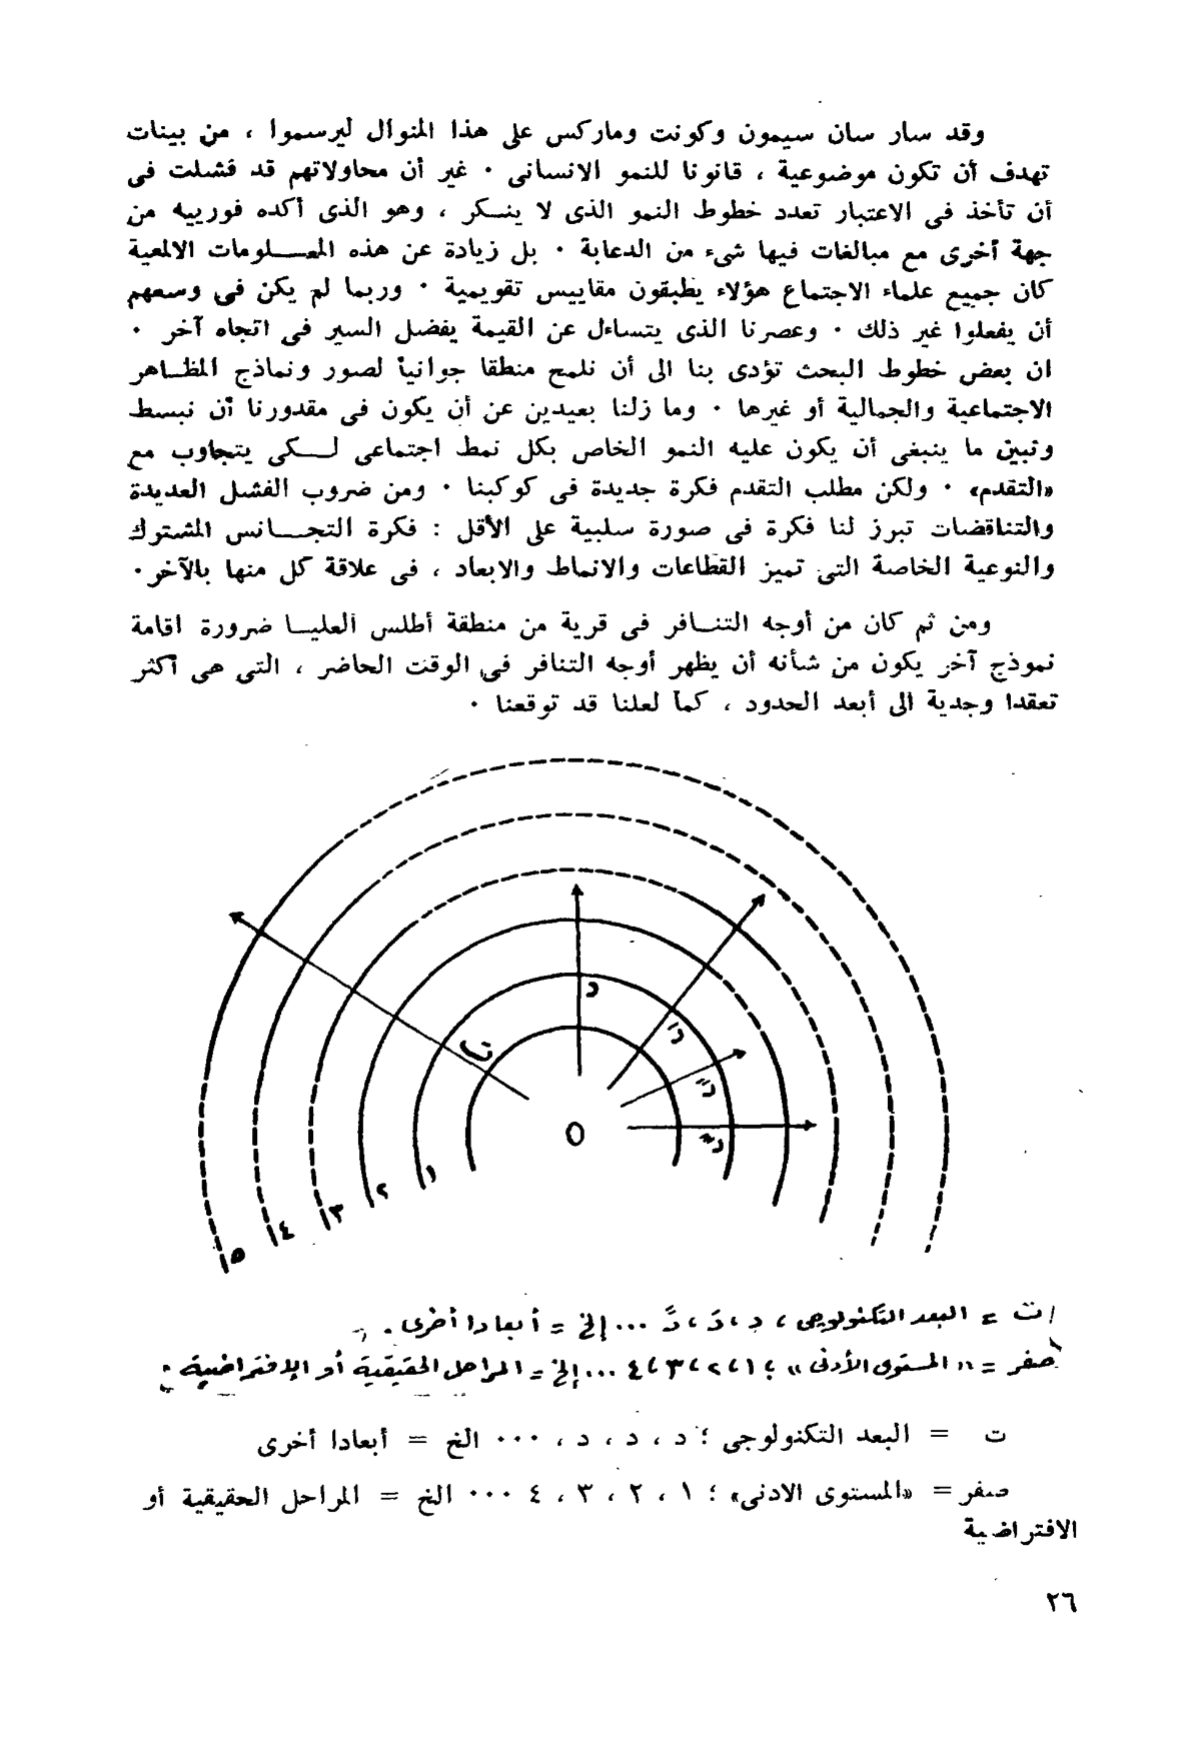 وقد سار سان سيمون وكونت وماركس على هذا المنوال ليرسموا ، من بينات
تهدف أن تكون موضوعية ، قانونا للنمو الانسانى ٠ غير أن محاولاتهم قد فشلت فى
أن تأخذ فى الاعتبار تعدد خطوط النمو الذى لا ينكر ، وهو الذى أكده فورييه من
جهة أخرى مع مبالغات فيها شىء من الدعابة ٠ بل زيادة عن هذه المعلومات الالمعية
كان جميع علماء الاجتماع هؤلاء يطبقون مقاييس تقويمية ٠ وربما لم يكن فى وسعهم
أن يفعلوا غير ذلك ٠ وعصرنا الذى يتساءل عن القيمة يفضل السير فى اتجاه آخر ٠
ان بعض خطوط البحث تؤدى بنا الى أن نلمح منطقا جوانياً لصور ونماذج المظاهر
الاجتماعية والجمالية أو غيرها ٠ وما زلنا بعيدين عن أن يكون فى مقدورنا أن نبسط
ونبين ما ينبغى أن يكون عليه النمو الخاص بكل نمط اجتماعى لكى يتجاوب مع
«التقدم» ٠ ولكن مطلب التقدم فكرة جديدة فى كوكبنا ٠ ومن ضروب الفشل العديدة
والتناقضات تبرز لنا فكرة فى صورة سلبية على الأقل : فكرة التجانس المشترك
والنوعية الخاصة التى تميز القطاعات والانماط والابعاد ، فى علاقة كل منها بالآخر ٠
ومن ثم كان من أوجه التنافر فى قرية من منطقة أطلس العليا ضرورة اقامة
نموذج آخر يكون من شأنه أن يظهر أوجه التنافر فى الوقت الحاضر ، التى هى أكثر
تعقدا وجدية الى أبعد الحدود ، كما لعلنا قد توقعنا ٠
ت
د
دَ
دً
O
١
٢
٣
٤
٥
ت = البعد التكنولوجى ، د ، دَ ، دً ... إلخ = أبعادا أخرى .
صفر = «المستوى الأدنى» ؛ ١ ، ٢ ، ٣ ، ٤ ... إلخ = المراحل الحقيقية أو الإفتراضية .
ت = البعد التكنولوجى ؛ د ، د ، د ، ٠٠٠ الخ = أبعادا أخرى
صفر = «المستوى الادنى» ؛ ١ ، ٢ ، ٣ ، ٤ ٠٠٠ الخ = المراحل الحقيقية أو
الافتراضية
٢٦